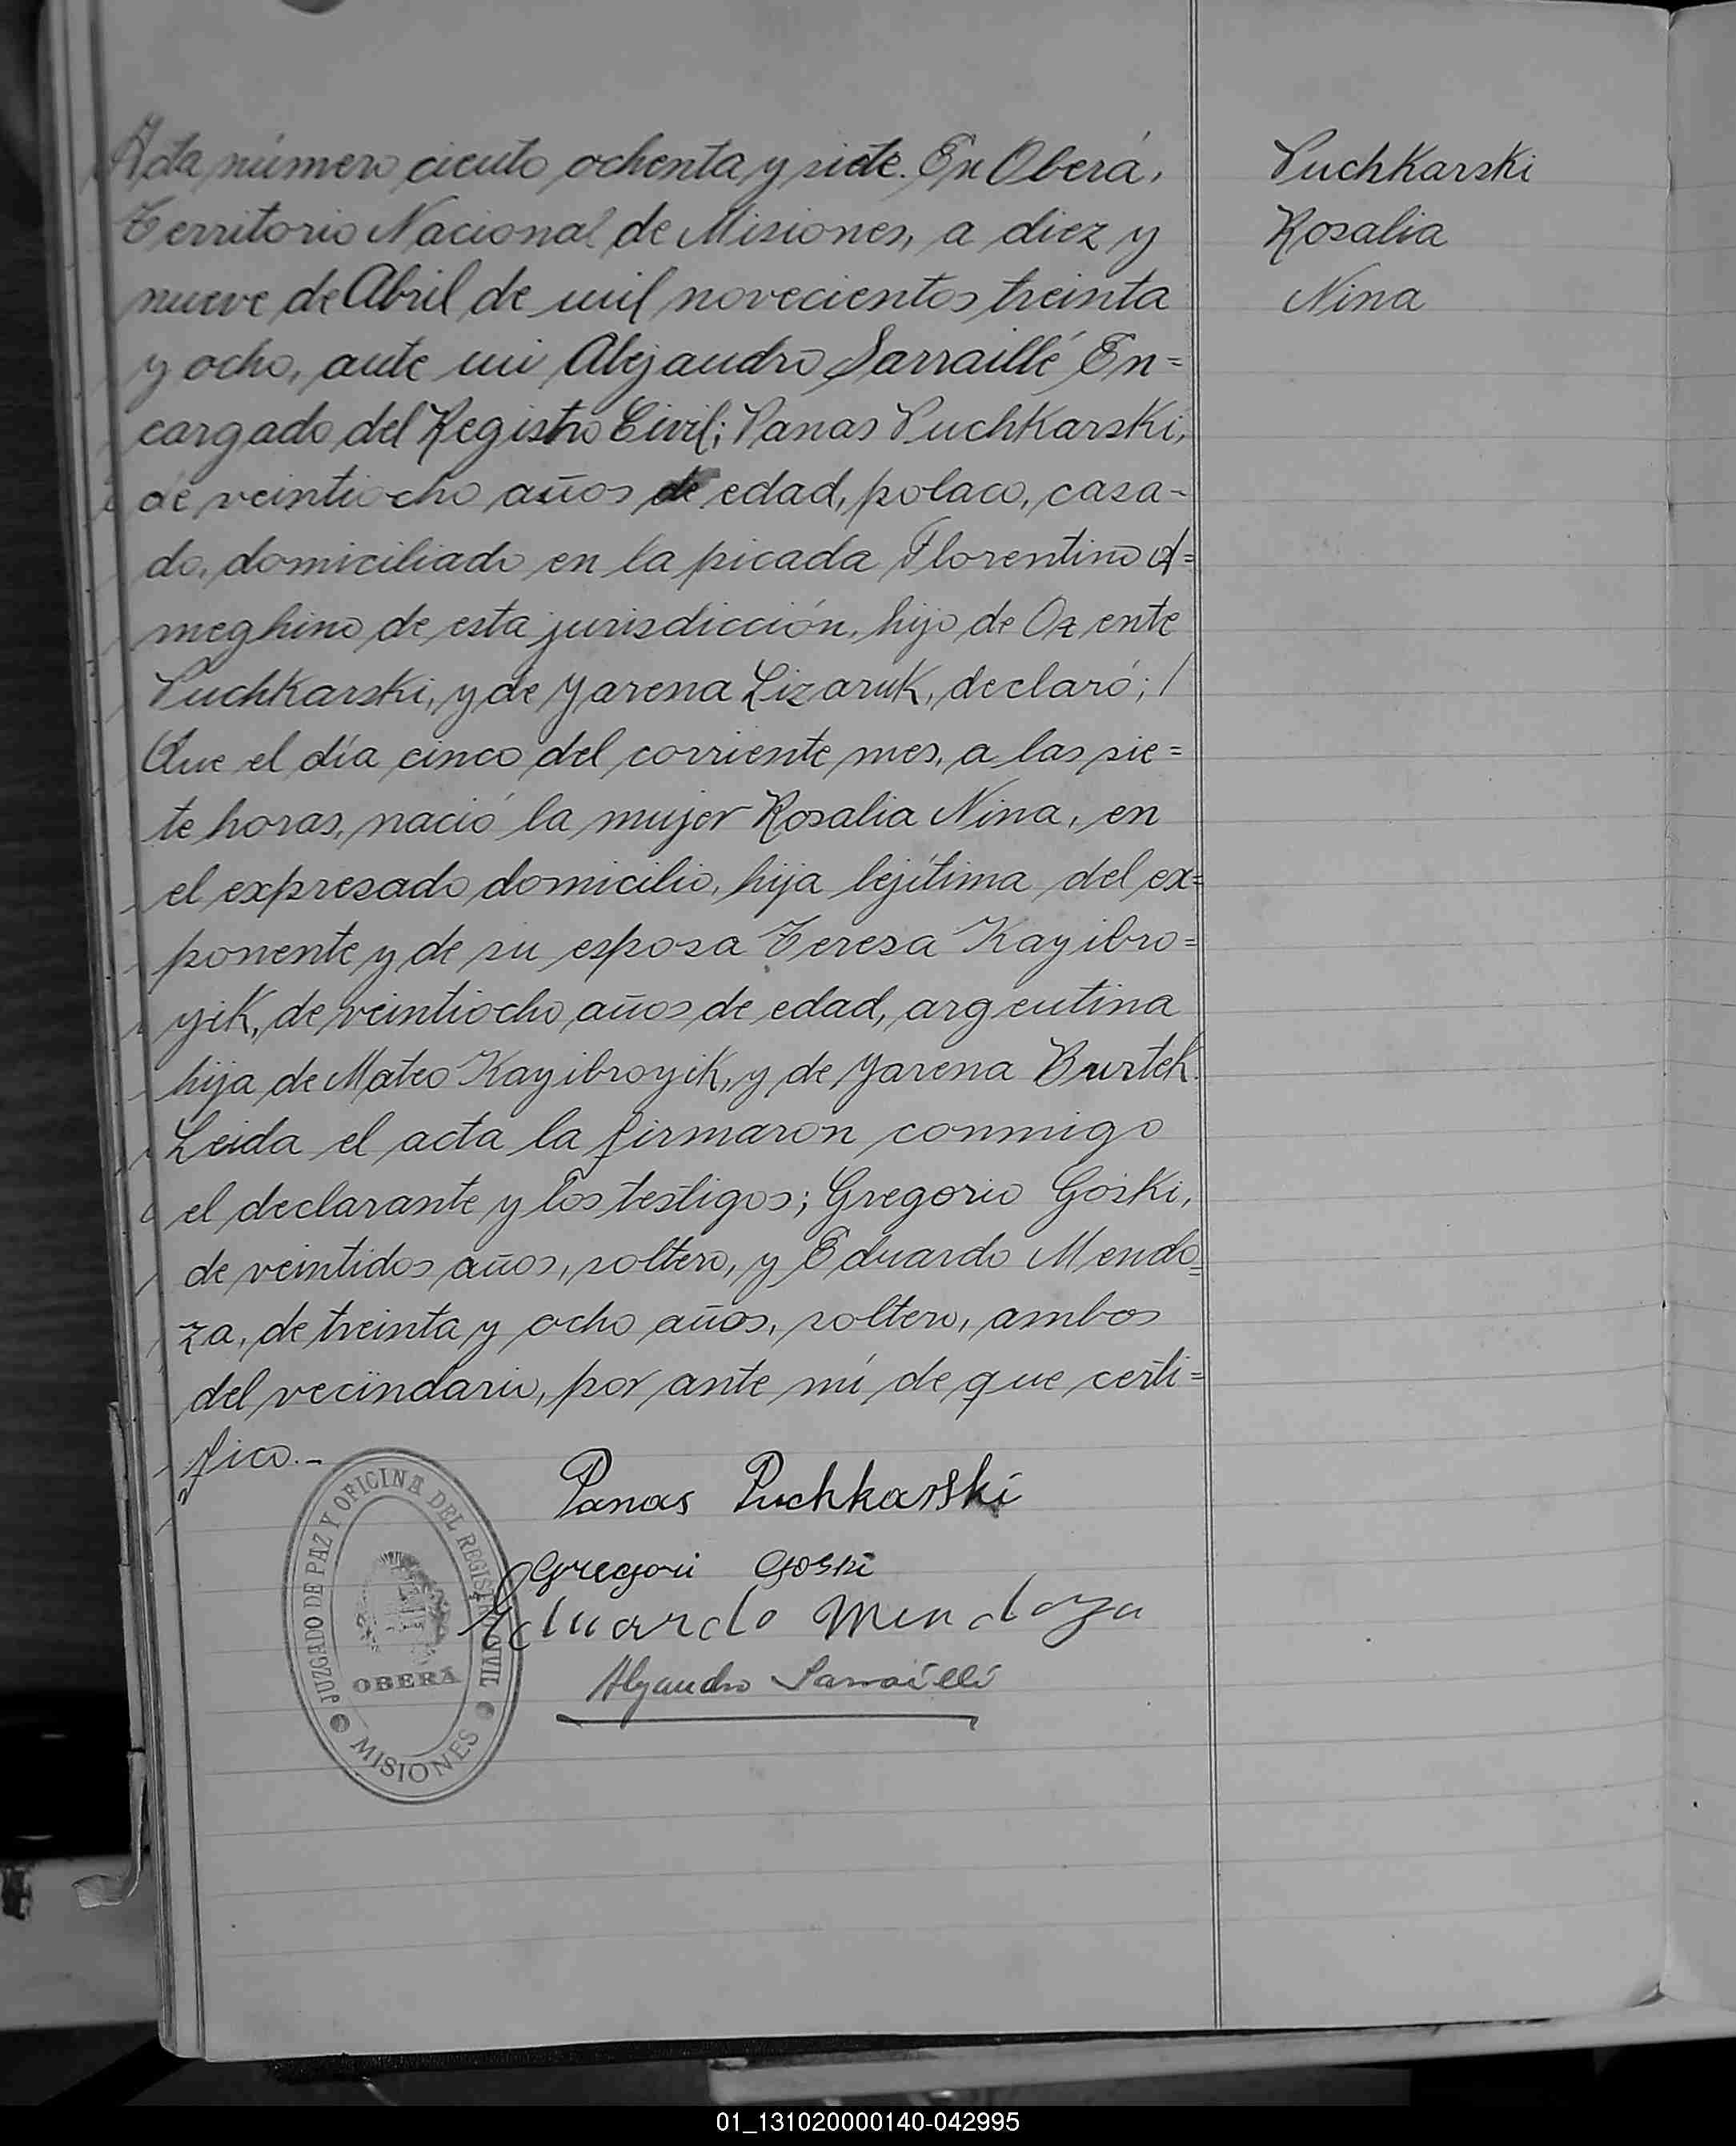 Acta número ciento ochenta y siete. En Oberá,
Territorio Nacional de Misiones, a diez y
nueve de Abril de mil novecientos treinta
y ocho, ante mi Alejandro Sarraillé En=
cargado del Registro Civil; Panas Puchkarski,
de veintiocho años de edad, polaco, casa-
do, domiciliado en la picada Florentino A=
meghino de esta jurisdicción, hijo de Ozente
Puchkarski, y de Yarena Lizaruk, declaró; /
Que el día cinco del corriente mes, a las sie=
te horas, nació la mujer Rosalia Nina, en
el expresado domicilio, hija lejítima del ex=
ponente y de su esposa Teresa Kayibro=
yik, de veintiocho años de edad, argentina
hija de Mateo Kayibroyik, y de Yarena Burtek.
Leida el acta la firmaron conmigo
el declarante y los testigos; Gregorio Goski,
de veintidos años, soltero, y Eduardo Mendo=
za, de treinta y ocho años, soltero, ambos
del vecindario, por ante mí de que certi=
fico.-
Panas Puchkarski
Gregori Goski
Eduardo Mendoza
Alejandro Sarraillé
JUZGADO DE PAZ Y OFICINA DEL REGISTRO CIVIL
OBERÁ
MISIONES
Puchkarski
Rosalia
Nina
01_131020000140-042995